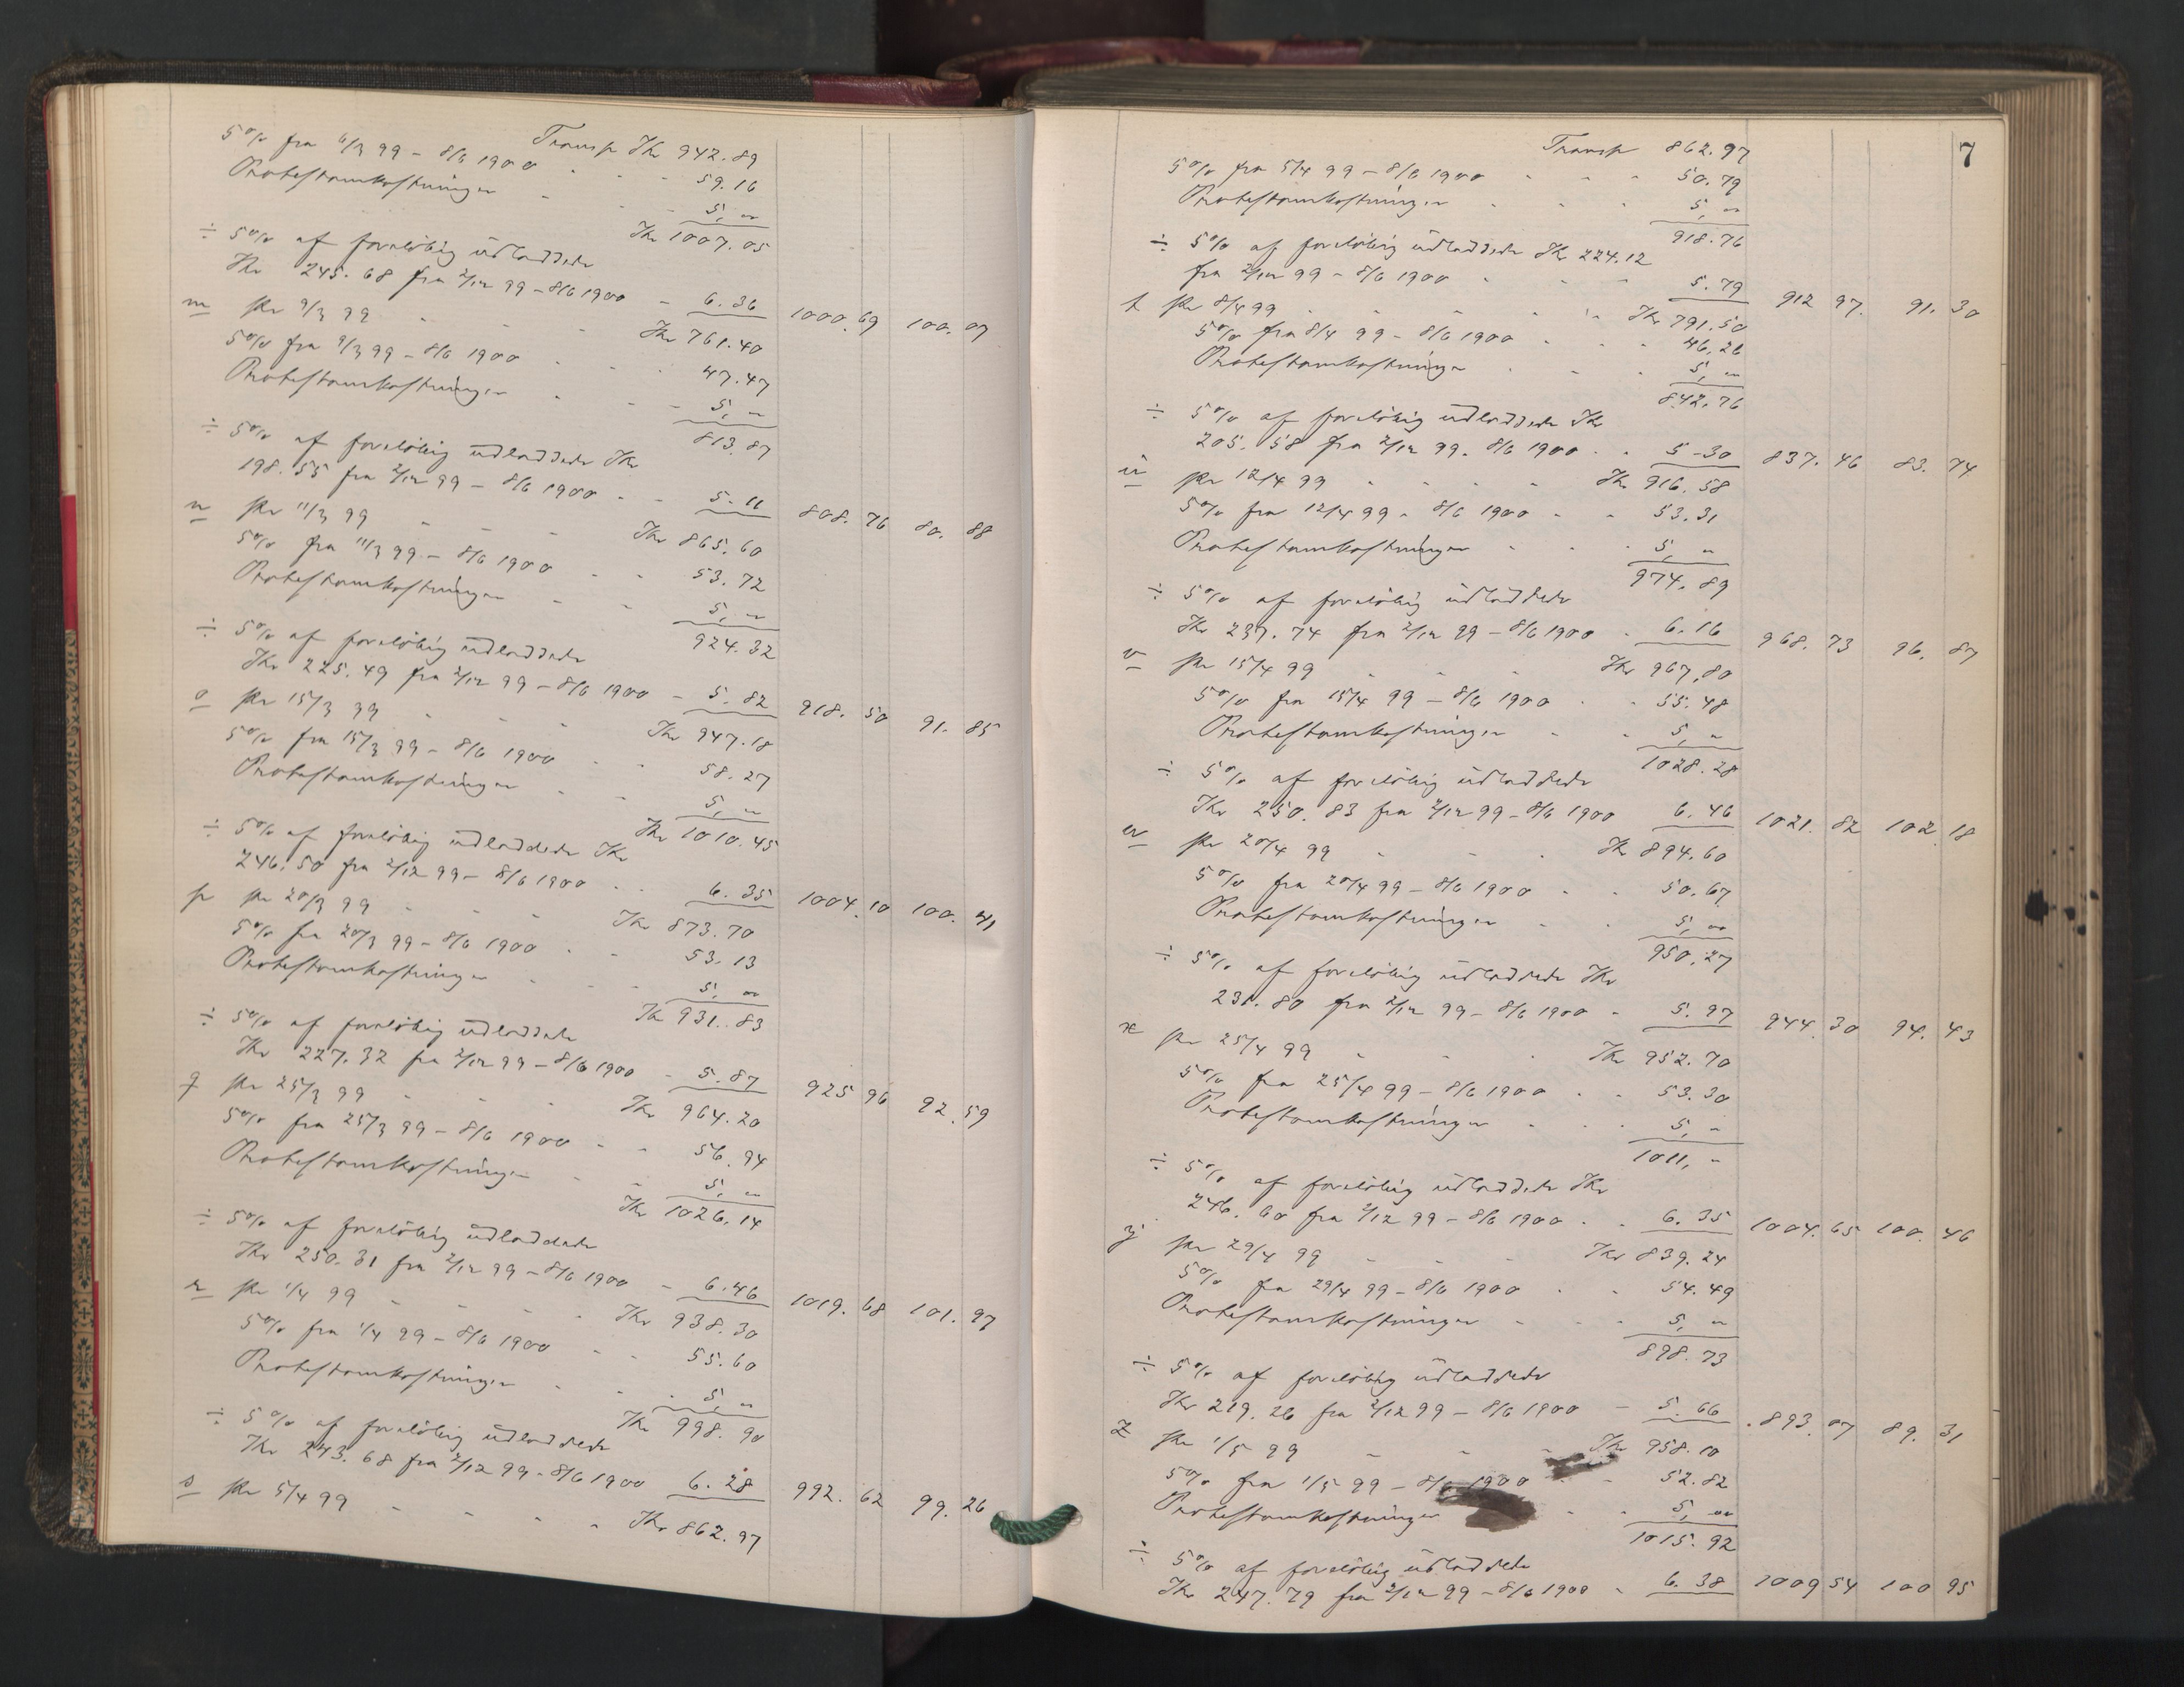 Transp Kr 942.89
5% fra 6/3 99 - 8/6 1900 - - 59.16
Protestomkostninger - - 5, "
Kr 1007.05
÷ 5% af foreløbig udloddede
Kr 245.68 fra 2/12 99 - 8/6 1900 - 6.36 1000.69 100.07
m pr 9/3 99 - - - Kr 761.40
5% fra 9/3 99 - 8/6 1900 - - 47.47
Protestomkostninger - - 5, "
813.87
÷ 5% af foreløbig udloddede Kr
198.55 fra 2/12 99 - 8/6 1900 - - 5.11 808.76 80.88
n pr 11/3 99 - - - Kr 865.60
5% fra 11/3 99 - 8/6 1900 - - 53.72
Protestomkostninger - - 5, "
924.32
÷ 5% af foreløbig udloddede
Kr 225.49 fra 2/12 99 - 8/6 1900 - 5.82 918.50 91.85
o pr 15/3 99 - - - Kr 947.18
5% fra 15/3 99 - 8/6 1900 - - 58.27
Protestomkostninger - - 5, "
Kr 1010.45
÷ 5% af foreløbig udloddede Kr
246.50 fra 2/12 99 - 8/6 1900 - - 6.35 1004.10 100.41
p pr 20/3 99 - - - Kr 873.70
5% fra 20/3 99 - 8/6 1900 - - 53.13
Protestomkostninger - - 5, "
Kr 931.83
÷ 5% af foreløbig udloddede
Kr 227.32 fra 2/12 99 - 8/6 1900 - 5.87 925 96 92.59
q pr 25/3 99 - - - Kr 964.20
5% fra 25/3 99 - 8/6 1900 - - 56.94
Protestomkostninger - - 5, "
Kr 1026.14
÷ 5% af foreløbig udloddede
Kr 250.31 fra 2/12 99 - 8/6 1900 - 6.46 1019.68 101.97
r pr 1/4 99 - - - - Kr 938.30
5% fra 1/4 99 - 8/6 1900 - - 55.60
Protestomkostninger - - - 5, "
Kr 998.90
÷ 5% af foreløbig udloddede
Kr 243.68 fra 2/12 99 - 8/6 1900 6.28 992.62 99.26
s pr 5/4 99 - - - - Kr 862.97
7
Transp 862.97
5% fra 5/4 99 - 8/6 1900 - - - 50.79
Protestomkostninger - - - 5, "
918.76
÷ 5% af foreløbig udloddede Kr 224.12
fra 2/12 99 - 8/6 1900 - - - 5.79 912 97. 91.30
t pr 8/4 99 - - - - Kr 791.50
5% fra 8/4 99 - 8/6 1900 - - - 46.26
Protestomkostninger - - - 5, "
842.76
÷ 5% af foreløbig udloddede Kr
205.58 fra 2/12 99. 8/6 1900 - - 5-30 837.46 83.74
u pr 12/4 99 - - - - Kr 916.58
5% fra 12/4 99 - 8/6 1900 - - 53.31
Protestomkostninger - - - 5, "
974.89
÷ 5% af foreløbig udloddede
Kr 237.74 fra 2/12 99 - 8/6 1900 - 6.16 968.73 96.87
v pr 15/4 99 - - - Kr 967.80
5% fra 15/4 99 - 8/6 1900 - - 55.48
Protestomkostninger - - 5, "
1028.28
÷ 5% af foreløbig udloddede
Kr 250.83 fra 2/12 99 - 8/6 1900 6.46 1021.82 102.18
w pr 20/4 99 - - - Kr 894.60
5% fra 20/4 99 - 8/6 1900 - - 50.67
Protestomkostninger - - 5, "
950.27
÷ 5% af foreløbig udloddede Kr
231.80 fra 2/12 99 - 8/6 1900 - 5.97 944.30 94.43
x pr 25/4 99 - - - Kr 952.70
5% fra 25/4 99 - 8/6 1900 - - 53.30
Protestomkostninger - - - 5, "
1011, -
÷ 5% af foreløbig udloddede Kr
246.60 fra 2/12 99 - 8/6 1900 - - 6.35 1004.65 100.46
y pr 29/4 99 - - - Kr 839.24
5% fra 29/4 99 - 8/6 1900 - - 54.49
Protestomkostninger - - - 5, "
898.73
÷ 5% af foreløbig udloddede
Kr 219.26 fra 2/12 99 - 8/6 1900 - 5.66 893.07 89.31
z pr 1/5 99 - - - Kr 958.10
5% fra 1/5 99 - 8/6 1900 - - 52.82
Protestomkostninger - - 5, "
1015.92
÷ 5% af foreløbig udloddede
Kr 247.79 fra 2/12 99 - 8/6 1900 - 6.38 1009 54 100 95